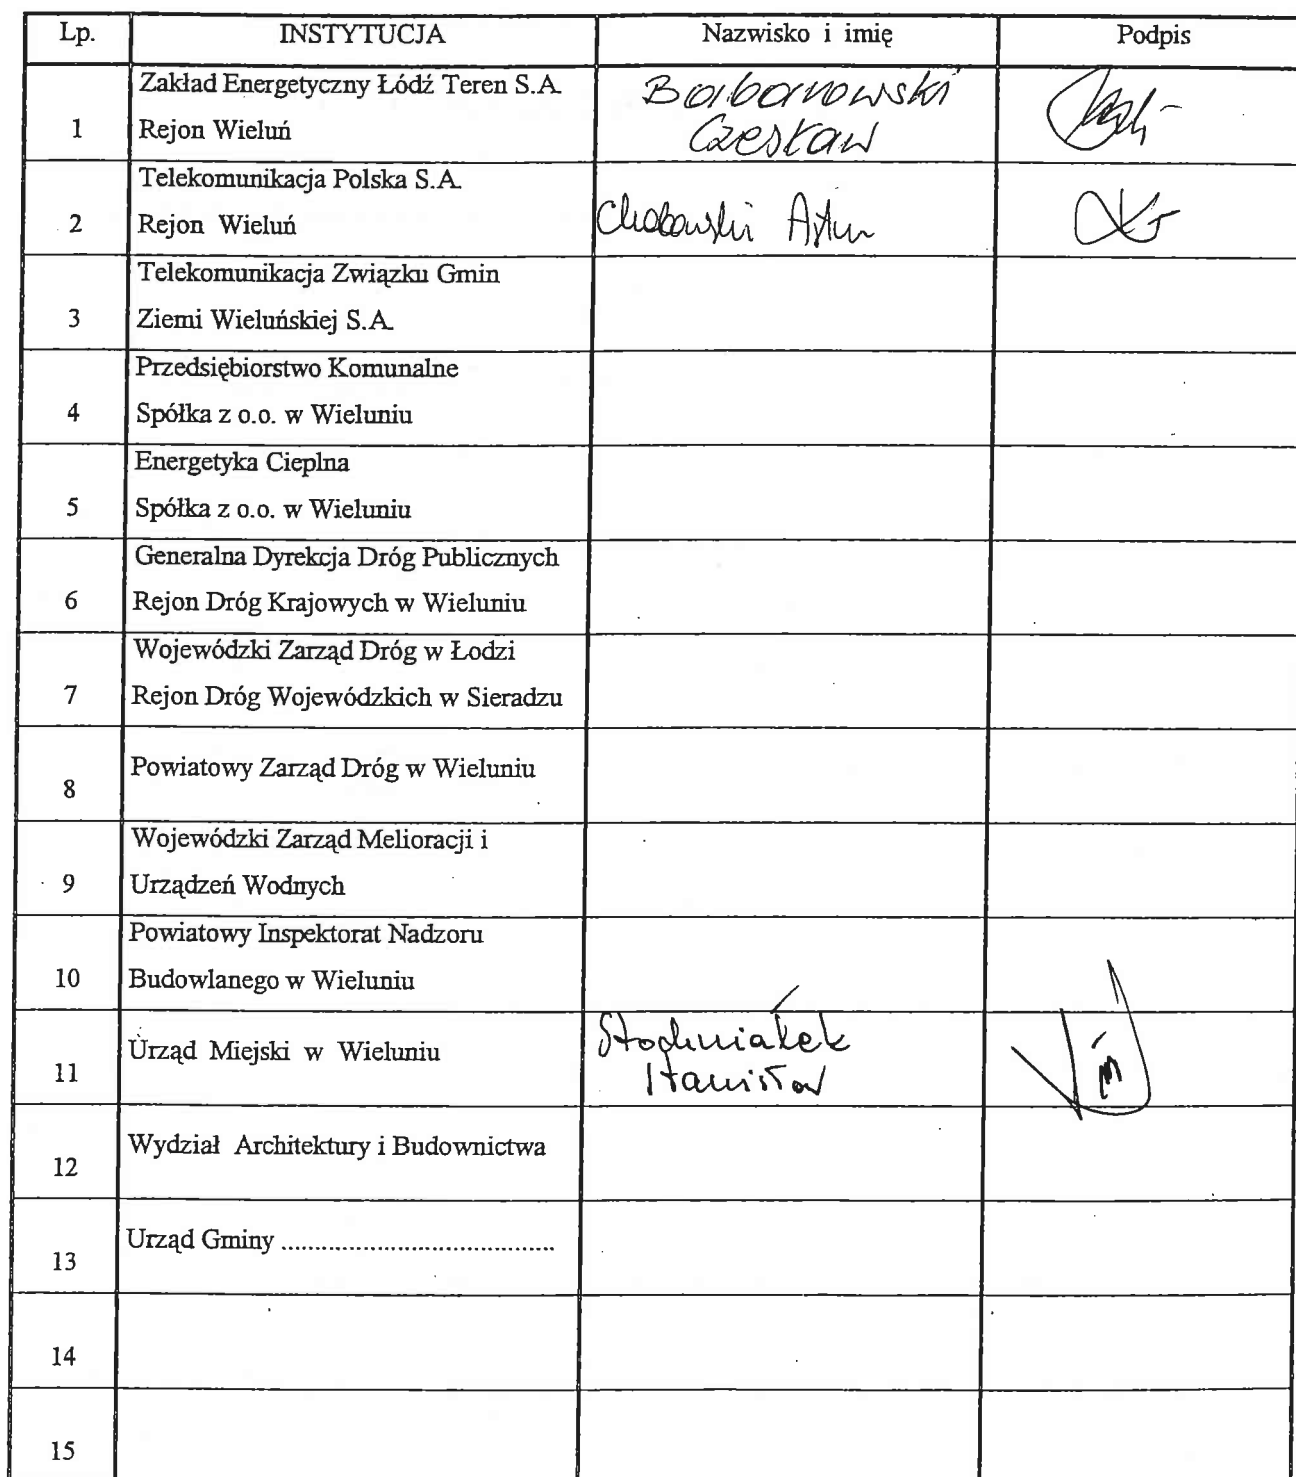 Lp. INSTYTUCJA Nazwisko i imię Podpis
Zakład Energetyczny Łódź Teren S.A.
1 Rejon Wieluń
Barbarowski
Czesław
Telekomunikacja Polska S.A.
2 Rejon Wieluń
Artur
Telekomunikacja Związku Gmin
3 Ziemi Wieluńskiej S.A.
Przedsiębiorstwo Komunalne
4 Spółka z o.o. w Wieluniu
Energetyka Cieplna
5 Spółka z o.o. w Wieluniu
Generalna Dyrekcja Dróg Publicznych
6 Rejon Dróg Krajowych w Wieluniu
Wojewódzki Zarząd Dróg w Łodzi
7 Rejon Dróg Wojewódzkich w Sieradzu
8 Powiatowy Zarząd Dróg w Wieluniu
Wojewódzki Zarząd Melioracji i
9 Urządzeń Wodnych
Powiatowy Inspektorat Nadzoru
10 Budowlanego w Wieluniu
11 Urząd Miejski w Wieluniu
Stochniałek
Stanisław
12 Wydział Architektury i Budownictwa
13 Urząd Gminy .....................................
14
15